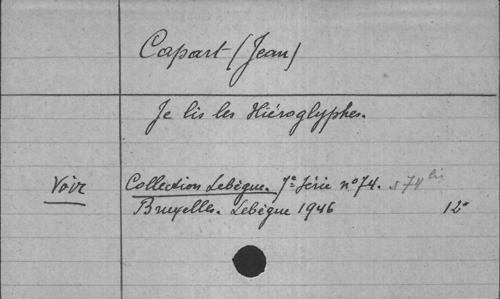 Capart (Jean)
Je lis les Hiéroglyphes.
Voir Collection Lebègue. 7e Série n° 74. & 74 bis
Bruxelles. Lebègue 1946 12°